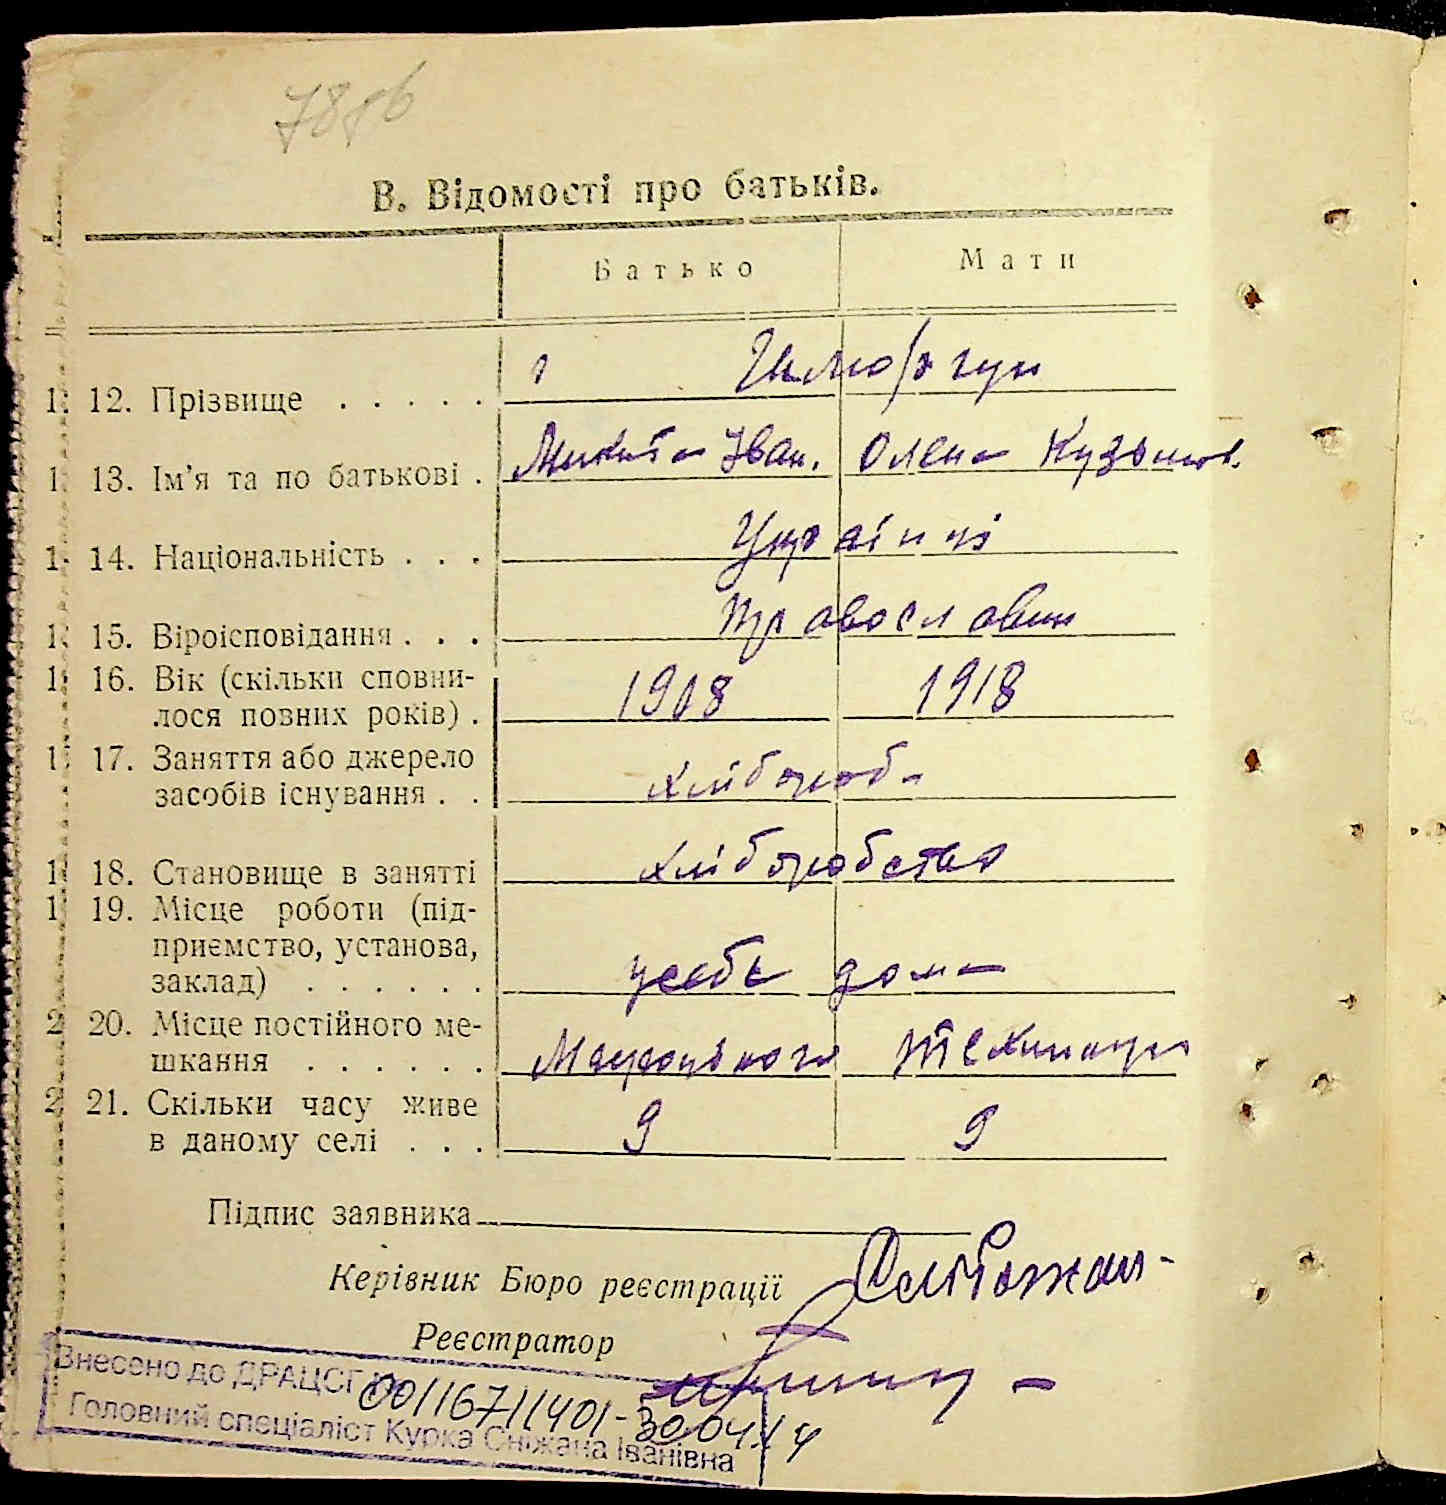 В. Відомості про батьків.
Батько Мати
12. Прізвище . . . . .
13. Ім'я та по батькові . Микита Іван. Олена Кузьмов.
14. Національність . . . Українці
15. Віроісповідання . . . Православн
16. Вік (скільки сповни-
лося повних років) . 1908 1918
17. Заняття або джерело
засобів існування . . хлібороб
18. Становище в занятті хліборобство
19. Місце роботи (під-
приємство, установа,
заклад) . . . . . . у себе дома
20. Місце постійного ме-
шкання . . . . . .
21. Скільки часу живе
в даному селі . . . 9 9
Підпис заявника
Керівник Бюро реєстрації
Реєстратор
Внесено до ДРАЦСГ
00116711401-30.04.14
Головний спеціаліст Курка Сніжана Іванівна